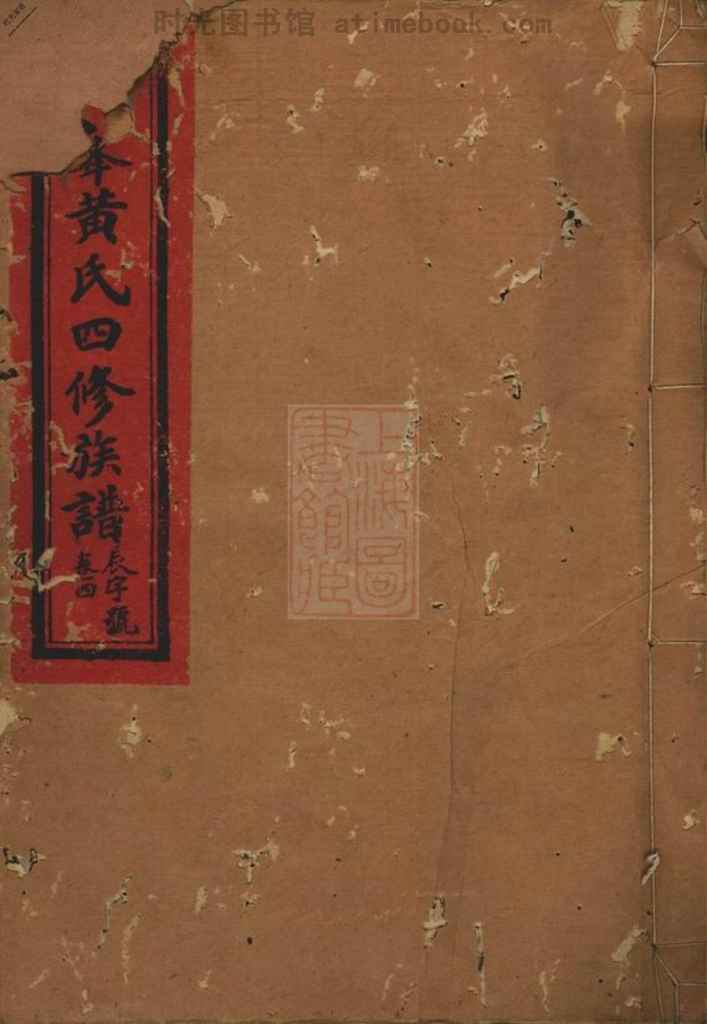 时光图书馆 atimebook.com
黄氏四修族譜
辰字號
卷四
上海圖
書館